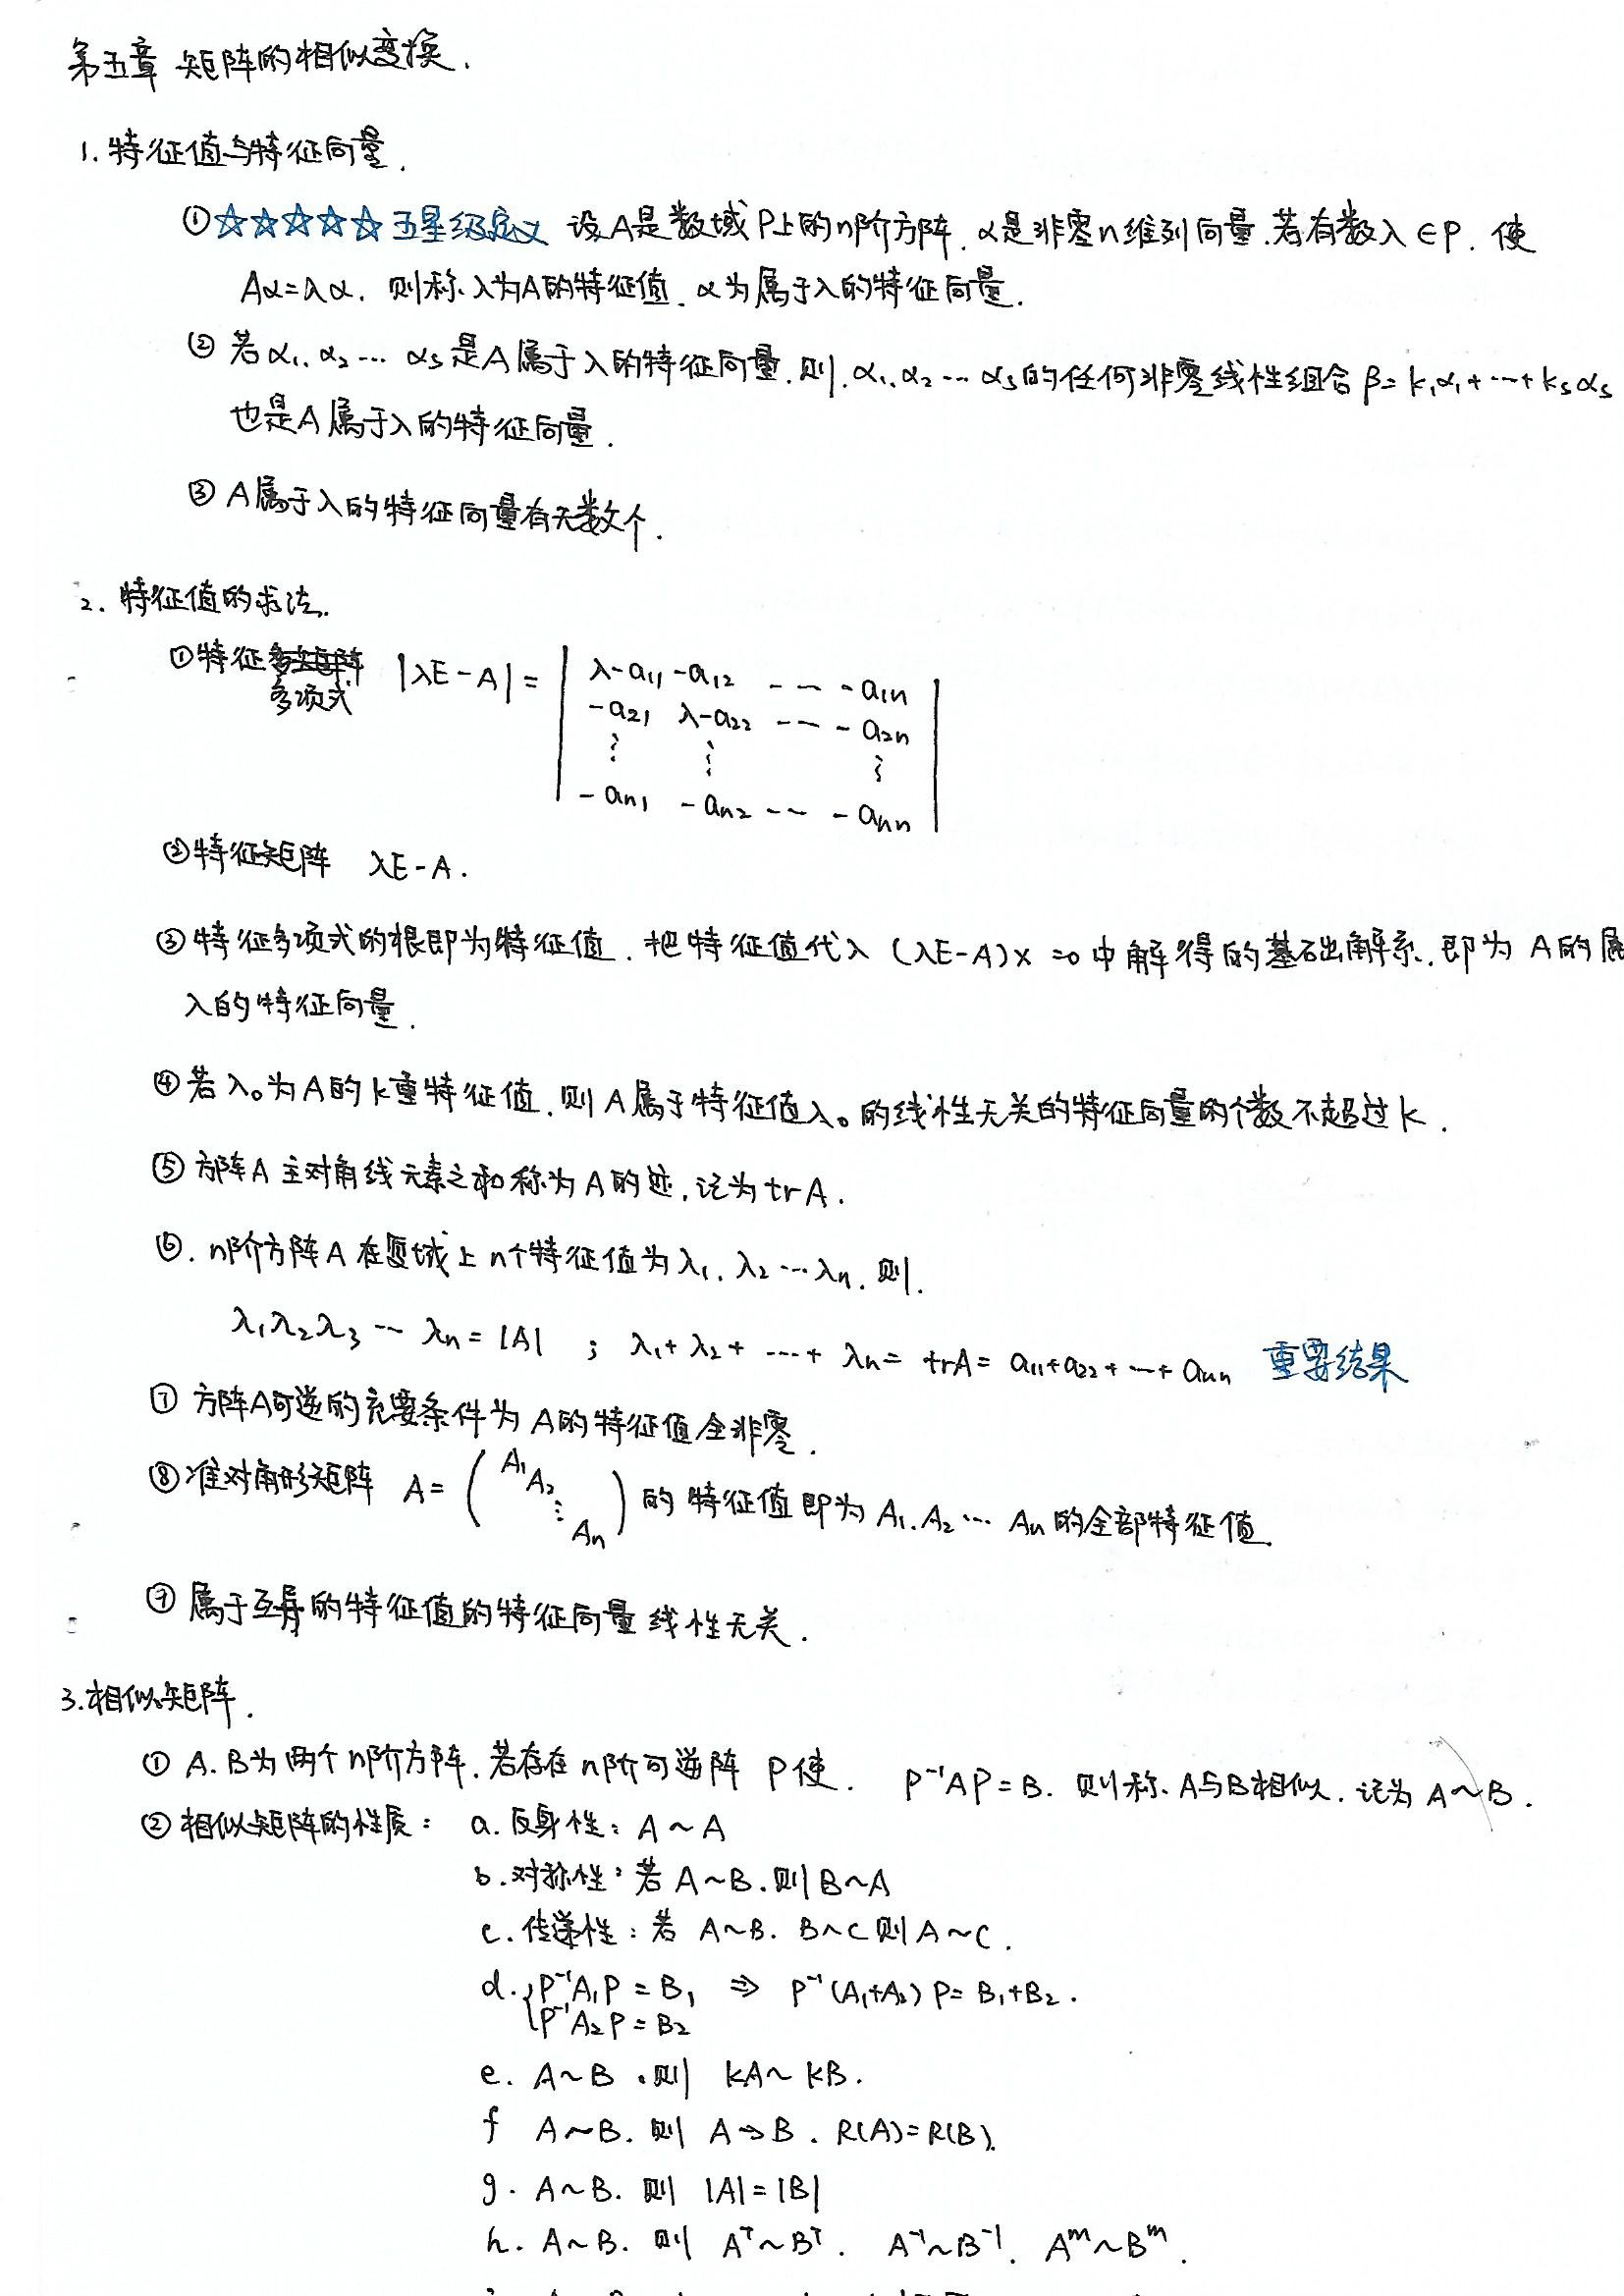 第五章 矩阵的相似变换.
1. 特征值与特征向量.
① ☆☆☆☆☆ 五星级定义 设A是数域P上的n阶方阵. α是非零n维列向量. 若有数λ∈P. 使
Aα=λα. 则称λ为A的特征值. α为属于λ的特征向量.
② 若α₁. α₂ … αs 是A属于λ的特征向量. 则. α₁. α₂ … αs的任何非零线性组合 β= k₁α₁+…+ksαs
也是A属于λ的特征向量.
③ A属于λ的特征向量有无数个.
2. 特征值的求法.
①特征多项式 |λE-A| = | λ-a₁₁ -a₁₂ … -a₁n
-a₂₁ λ-a₂₂ … -a₂n
⋮ ⋮ ⋮
-an₁ -an₂ … -ann |
②特征矩阵 λE-A.
③特征多项式的根即为特征值. 把特征值代入 (λE-A)x=0中解得的基础解系. 即为A的属
λ的特征向量.
④若λ₀为A的k重特征值. 则A属于特征值λ₀的线性无关的特征向量的个数不超过k.
⑤ 方阵A主对角线元素之和称为A的迹, 记为trA.
⑥. n阶方阵A在复域上n个特征值为λ₁. λ₂…λn. 则.
λ₁λ₂λ₃…λn=|A| ; λ₁+λ₂+…+λn= trA= a₁₁+a₂₂+…+ann 重要结果
⑦ 方阵A可逆的充要条件为A的特征值全非零.
⑧准对角形矩阵 A= ( A₁ A₂ ⋮ An ) 的特征值即为A₁. A₂… An的全部特征值.
⑨ 属于互异的特征值的特征向量线性无关.
3.相似矩阵.
① A. B为两个n阶方阵. 若存在n阶可逆阵 P使. P⁻¹AP=B. 则称. A与B相似. 记为A~B.
② 相似矩阵的性质: a. 反身性: A~A
b. 对称性: 若A~B. 则B~A
c. 传递性: 若 A~B. B~C则A~C.
d. { P⁻¹A₁P=B₁ ⇒ P⁻¹(A₁+A₂)P= B₁+B₂.
P⁻¹A₂P=B₂
e. A~B. 则 kA~kB.
f A~B. 则 A→B. R(A)=R(B).
g. A~B. 则 |A|=|B|
h. A~B. 则 Aᵀ~Bᵀ. A⁻¹~B⁻¹. Aᵐ~Bᵐ.